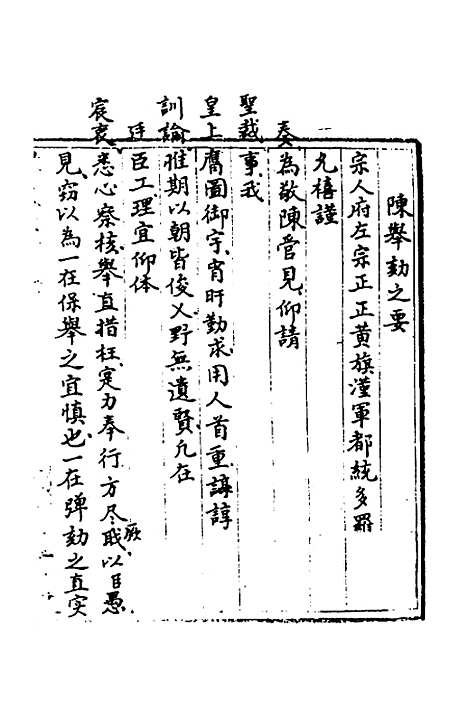 陳舉劾之要
宗人府左宗正正黃旗漢軍都統多羅
允禧謹
奏為敬陳管見仰請
聖裁事我
皇上膺圖御宇宵旰勤求用人首重諄諄
訓諭惟期以朝皆俊乂野無遺賢凡在
廷臣工理宜仰体
宸衷悉心察核舉直措枉寔力奉行方尽厥戢以臣愚
見窃以為一在保舉之宜慎也一在弹劾之直实